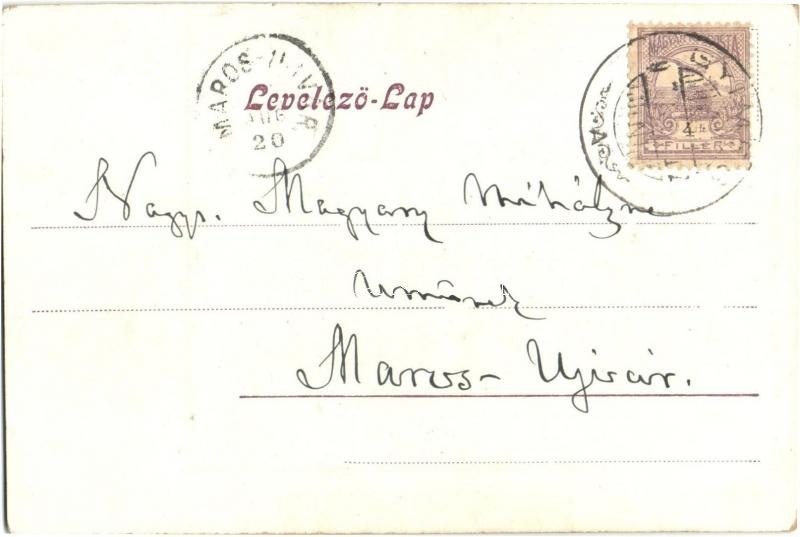 MAROS-UJVÁR
AUG
20
Levelező-Lap
MAGYAR
4
FILLÉR
Nagys. Magyary Mihályné
Maros-Ujvár.